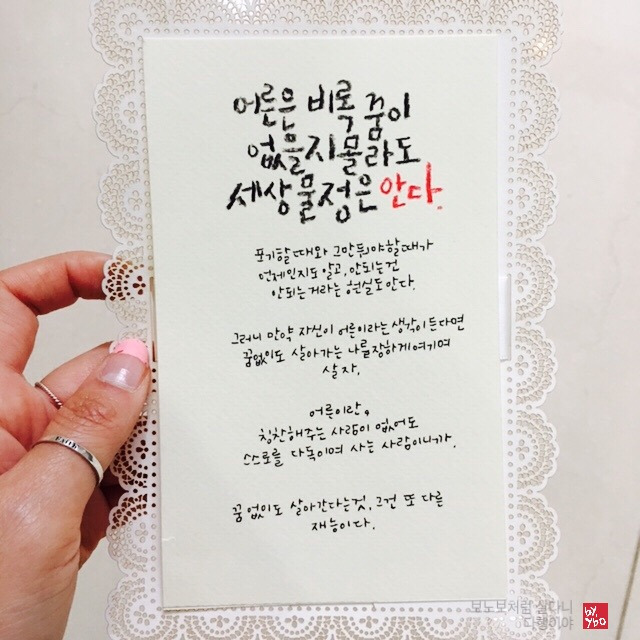 어른은 비록 꿈이
없을지몰라도
세상물정은 안다.
포기할때와 그만둬야할때가
언제인지도 알고, 안되는건
안되는거라는 현실도안다.
그러니 만약 자신이 어른이라는생각이든다면
꿈없이도 살아가는 나를장하게여기며
살자.
어른이란,
칭찬해주는 사람이 없어도
스스로를 다독이며 사는 사람이니까.
꿈 없이도 살아간다는것, 그건 또 다른
재능이다.
보노보처럼 살다니
다행이야
by.
ybo